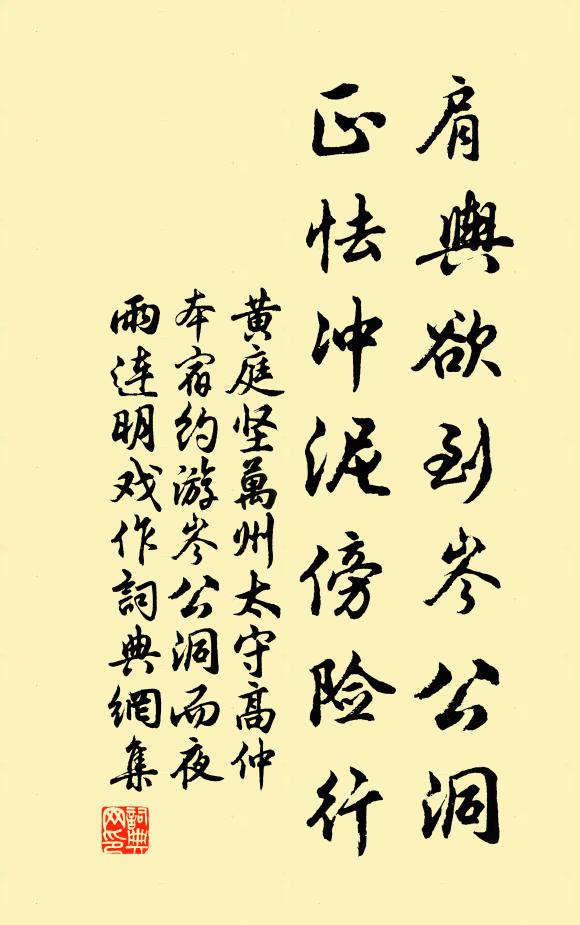 肩輿欲到岑公洞
正怯冲泥傍险行
黄庭坚萬州太守高仲
本宿约游岑公洞而夜
雨连明戏作詞典網集
詞典网印